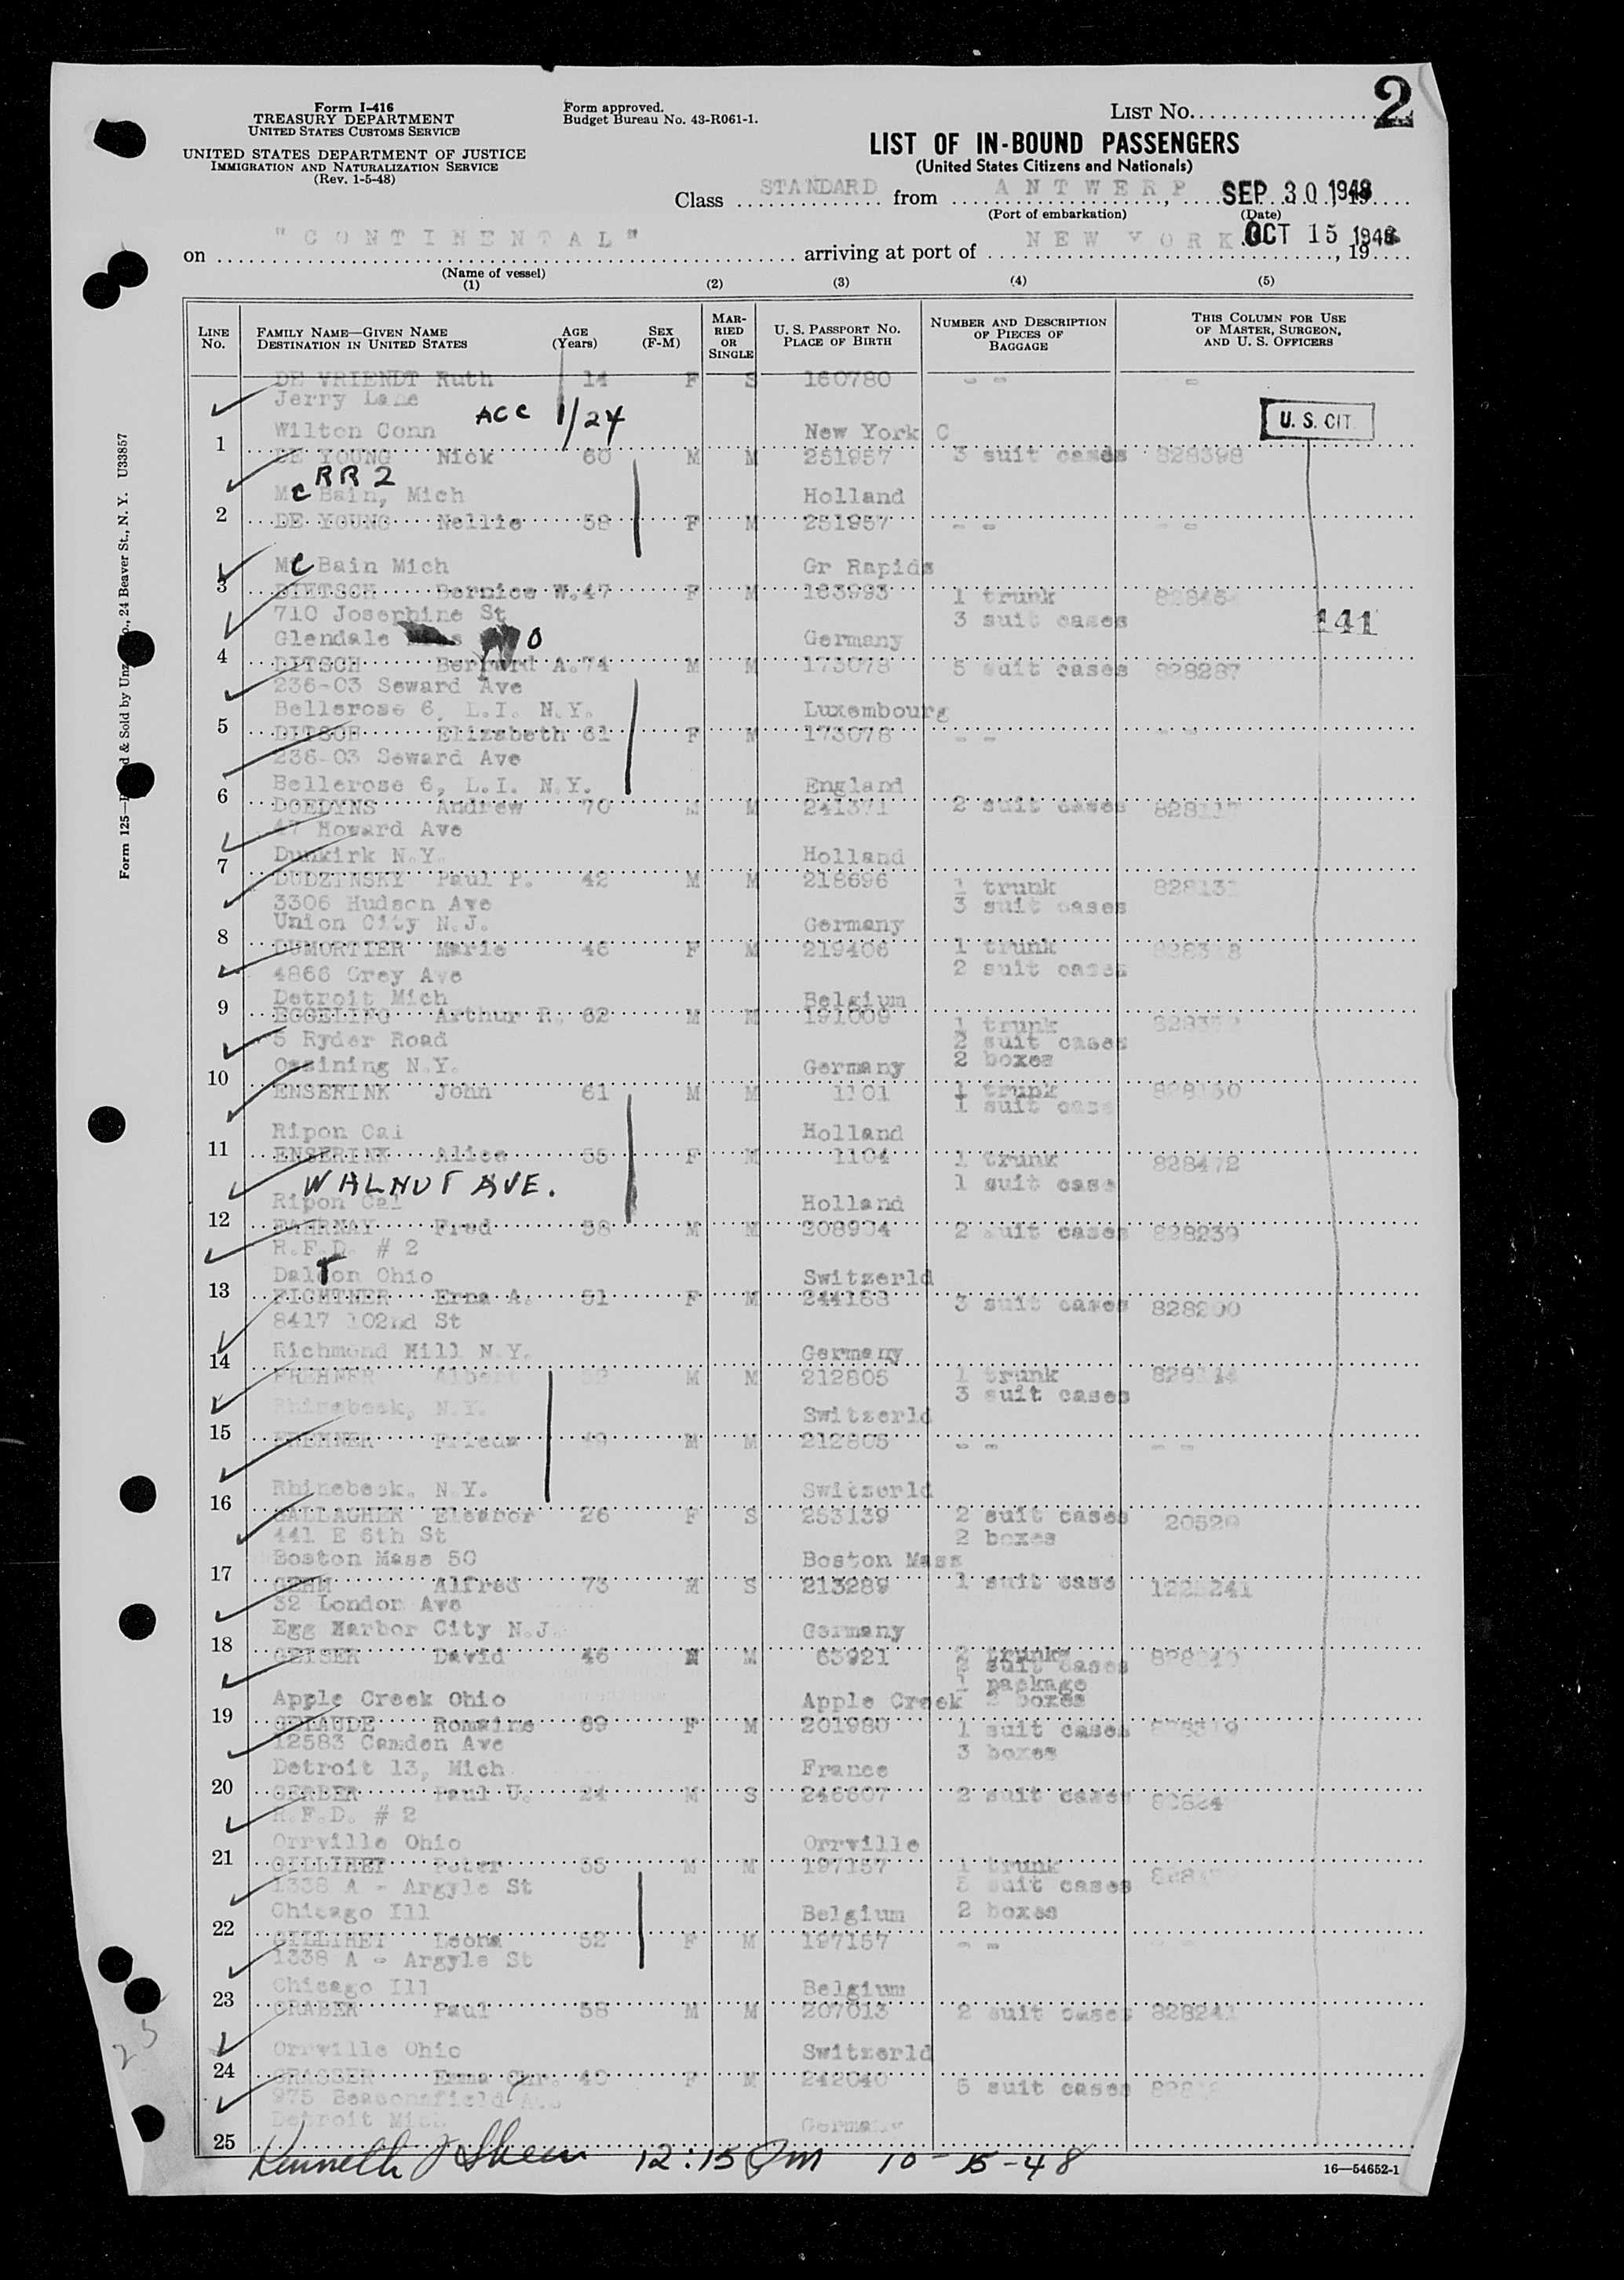 Form I-416
TREASURY DEPARTMENT
UNITED STATES CUSTOMS SERVICE
UNITED STATES DEPARTMENT OF JUSTICE
IMMIGRATION AND NATURALIZATION SERVICE
(Rev. 1-5-48)
Form approved.
Budget Bureau No. 43-R061-1.
LIST No. 2
LIST OF IN-BOUND PASSENGERS
(United States Citizens and Nationals)
Class STANDARD from ANTWERP, SEP 30 1948
(Port of embarkation) (Date)
on "CONTINENTAL" arriving at port of NEW YORK OCT 15 1948, 19
(Name of vessel)
(1) (2) (3) (4) (5)
LINE No. FAMILY NAME—GIVEN NAME DESTINATION IN UNITED STATES AGE (Years) SEX (F-M) MARRIED OR SINGLE U. S. PASSPORT NO. PLACE OF BIRTH NUMBER AND DESCRIPTION OF PIECES OF BAGGAGE THIS COLUMN FOR USE OF MASTER, SURGEON, AND U. S. OFFICERS
DE VRIENDT Ruth 14 F S 160780 - - -
Jerry Lane
ACC 1/24
U. S. CIT.
1 Wilton Conn New York C
DE YOUNG Nick 60 M M 251957 3 suit cases 828398
RR 2
2 Mc Bain, Mich Holland
DE YOUNG Nellie 58 F M 251957 - - - -
3 Mc Bain Mich Gr Rapids
DIETSCH Bernice W. 47 F M 163993 1 trunk
710 Josephine St 3 suit cases 141
4 Glendale MO Germany
DITSCH Bernard A. 74 M M 173078 5 suit cases 828287
236-03 Seward Ave
5 Bellerose 6, L.I. N.Y. Luxembourg
DITSCH Elizabeth 61 F M 173078 - - - -
236-03 Seward Ave
6 Bellerose 6, L.I. N.Y. England
DOEDYNS Andrew 70 M M 241371 2 suit cases
47 Howard Ave
7 Dunkirk N.Y. Holland
DUDZINSKY Paul P. 42 M M 218696 1 trunk
3306 Hudson Ave 3 suit cases
8 Union City N.J. Germany
DUMORTIER Marie 46 F M 219406 1 trunk
4866 Grey Ave 2 suit cases
9 Detroit Mich Belgium
EGGELING Arthur R. 62 M M 191009 1 trunk
5 Ryder Road 2 suit cases
10 Ossining N.Y. Germany 2 boxes
ENSERINK John 61 M M 1101 1 trunk
1 suit case
11 Ripon Cal Holland
ENSERINK Alice 55 F M 1104 1 trunk 828472
WALNUT AVE. 1 suit case
12 Ripon Cal Holland
FAHRNAY Fred 58 M M 208904 2 suit cases 828239
R.F.D. # 2
13 Dalton Ohio Switzerld
FICHTNER Erna A. 51 F M 244188 3 suit cases 828200
8417 102nd St
14 Richmond Hill N.Y. Germany
FREHNER Albert 52 M M 212805 1 trunk
3 suit cases
15 Rhinebeck, N.Y. Switzerld
FREHNER Frieda 49 M M 212805 - - - -
16 Rhinebeck, N.Y. Switzerld
GALLAGHER Eleanor 26 F S 253139 2 suit cases 20529
441 E 6th St 2 boxes
17 Boston Mass 50 Boston Mass
GEHM Alfred 73 M S 213289 1 suit case
32 London Ave
18 Egg Harbor City N.J. Germany
GEISER David 46 M M 63921 2 trunks
suit cases
1 package
19 Apple Creek Ohio Apple Creek 2 boxes
GELAUDE Romaine 69 F M 201980 1 suit cases
12583 Camden Ave 3 boxes
20 Detroit 13, Mich France
GERBER Paul U. 24 M S 246607 2 suit cases
R.F.D. # 2
21 Orrville Ohio Orrville
Peter 55 M M 197157 1 trunk
1338 A - Argyle St 5 suit cases
22 Chicago Ill Belgium 2 boxes
Leona 52 F M 197157 - - - -
1338 A - Argyle St
23 Chicago Ill Belgium
GRABER Paul 58 M M 207013 2 suit cases 828241
24 Orrville Ohio Switzerld
GRASSER Emma Chr. 40 F M 242040 5 suit cases
975 Beaconsfield Ave
Detroit Mich Germany
25
Kenneth J Shea 12:15 PM 10-15-48
16—54652-1
24 Beaver St., N. Y. U33857
Form 125— & Sold by
25